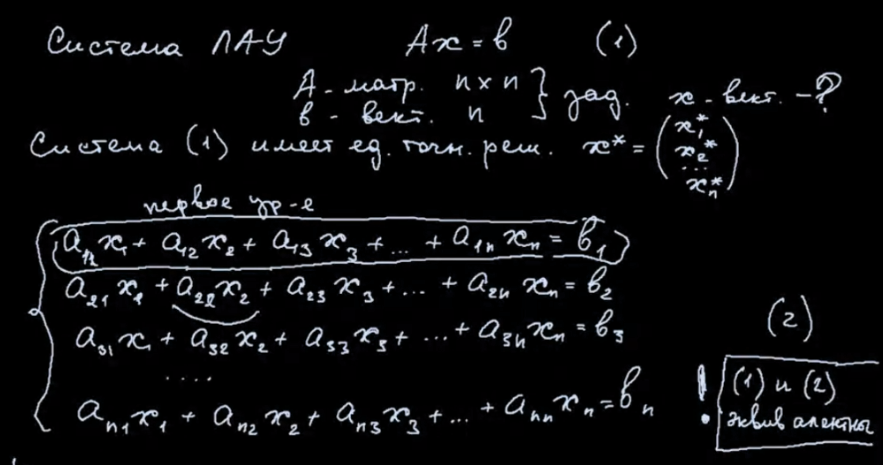 Система ЛАУ Ax = b (1)
A - матр. n x n } зад. x - вект. - ?
b - вект. n
Система (1) имеет ед. точн. реш. x* = (x₁* x₂* ... xₙ*)
первое ур-е
a₁₁x₁ + a₁₂x₂ + a₁₃x₃ + ... + a₁ₙxₙ = b₁
a₂₁x₁ + a₂₂x₂ + a₂₃x₃ + ... + a₂ₙxₙ = b₂
a₃₁x₁ + a₃₂x₂ + a₃₃x₃ + ... + a₃ₙxₙ = b₃
(2)
....
aₙ₁x₁ + aₙ₂x₂ + aₙ₃x₃ + ... + aₙₙxₙ = bₙ
! (1) и (2)
эквивалентны